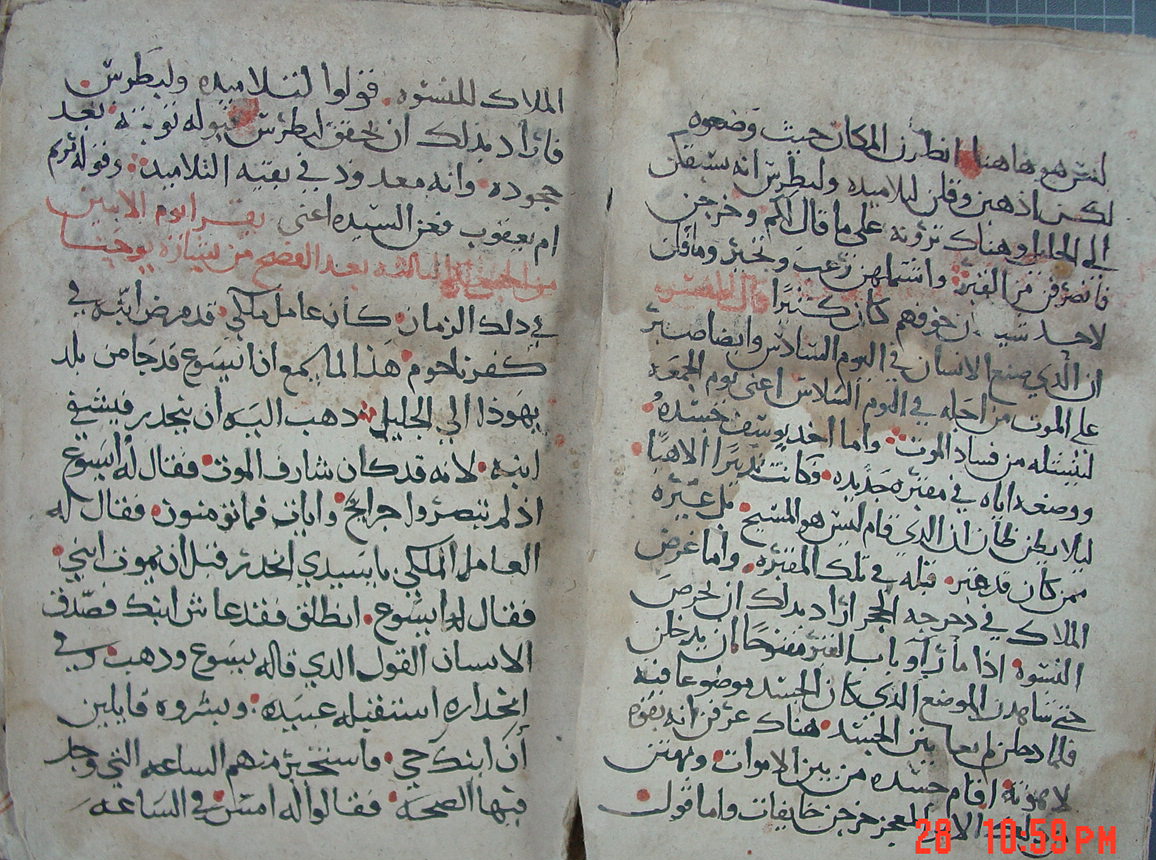 ليس هو هاهنا انظرن المكان حيث وضعوه
لكن اذهبن وقلن لتلاميده ولبطرس انه يسبقكن
الي الجليل وهناك ترونه على ما قال لكم وخرجن
فانصرفن من القبر واشتملهن رعب وتحير وما قلن
لاحد شيئا لان خوفهم كان كثيرا قال المفسر
ان الدي صنع الانسان في اليوم السادس وايضا صبر
على الموت من اجله في اليوم السادس اعني يوم الجمعه
لينشله من فساد الموت واما اخد يوسف جسده
ووضعه اياه في مقبره جديده فكانت تدبيرا الاهيا
ليلا يظن ظان ان الدي قام ليس هو المسيح بل غيره
ممن كان قد قبر قبله في تلك المقبره واما غرض
الملاك في دحرجه الحجر اراد بدلك ان يحرص
النسوه اذا ما راو باب القبر مفتوحا ان يدخلن
حتى يشاهدن الموضع الدي كان الجسد موضوعا فيه
فلما دخلن لم يعاين الجسد هناك عرفن انه بقوه
لاهوته اقام جسده من بين الاموات وبهتن
من هدا الامر المعجز خرجن خايفات واما قول
28 10:59 PM
الملاك للنسوه فقولوا لتلاميده ولبطرس
فاراد بدلك ان يحقق لبطرس قبوله توبته بعد
جحوده وانه معدود في بقيه التلاميد وقوله مريم
ام يعقوب فعن السيده اعني يقرا يوم الاثنين
من الجمعه الثالثه بعد الفصح من بشاره يوحنا
في دلك الزمان كان عامل ملكي قد مرض ابنه في
كفرناحوم هدا لما سمع ان ايسوع قد جا من بلد
يهوذا الي الجليل دهب اليه ان ينحدر فيشفي
ابنه لانه قد كان شارف الموت فقال له ايسوع
اذ لم تبصروا جرايح وايات فما تومنون فقال له
العامل الملكي يا سيدي انحدر قبل ان يموت ابني
فقال له ايسوع انطلق فقد عاش ابنك فصدق
الانسان القول الدي قاله يسوع ودهب وفي
انحداره استقبله عبيده وبشروه قايلين
ان ابنك حي فاستخبر منهم الساعه التي وجد
فيها الصحه فقالوا له امس في الساعه